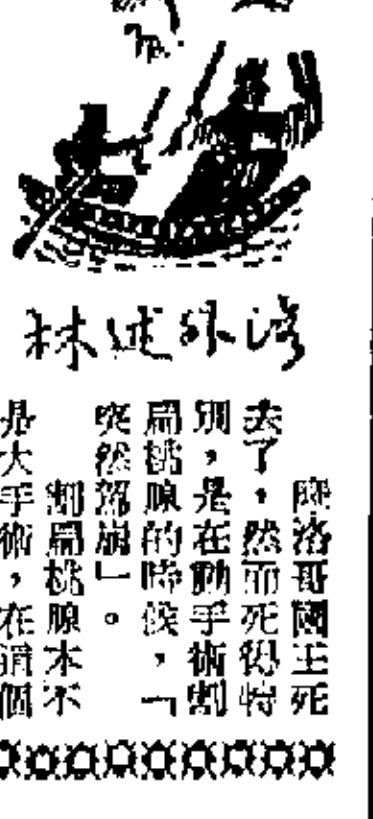 海外述林
摩洛哥國王死
去了，然而死得特
別，是在動手術割
扁桃腺的時候，「
突然駕崩」。
割扁桃腺木不
是大手術，在這個